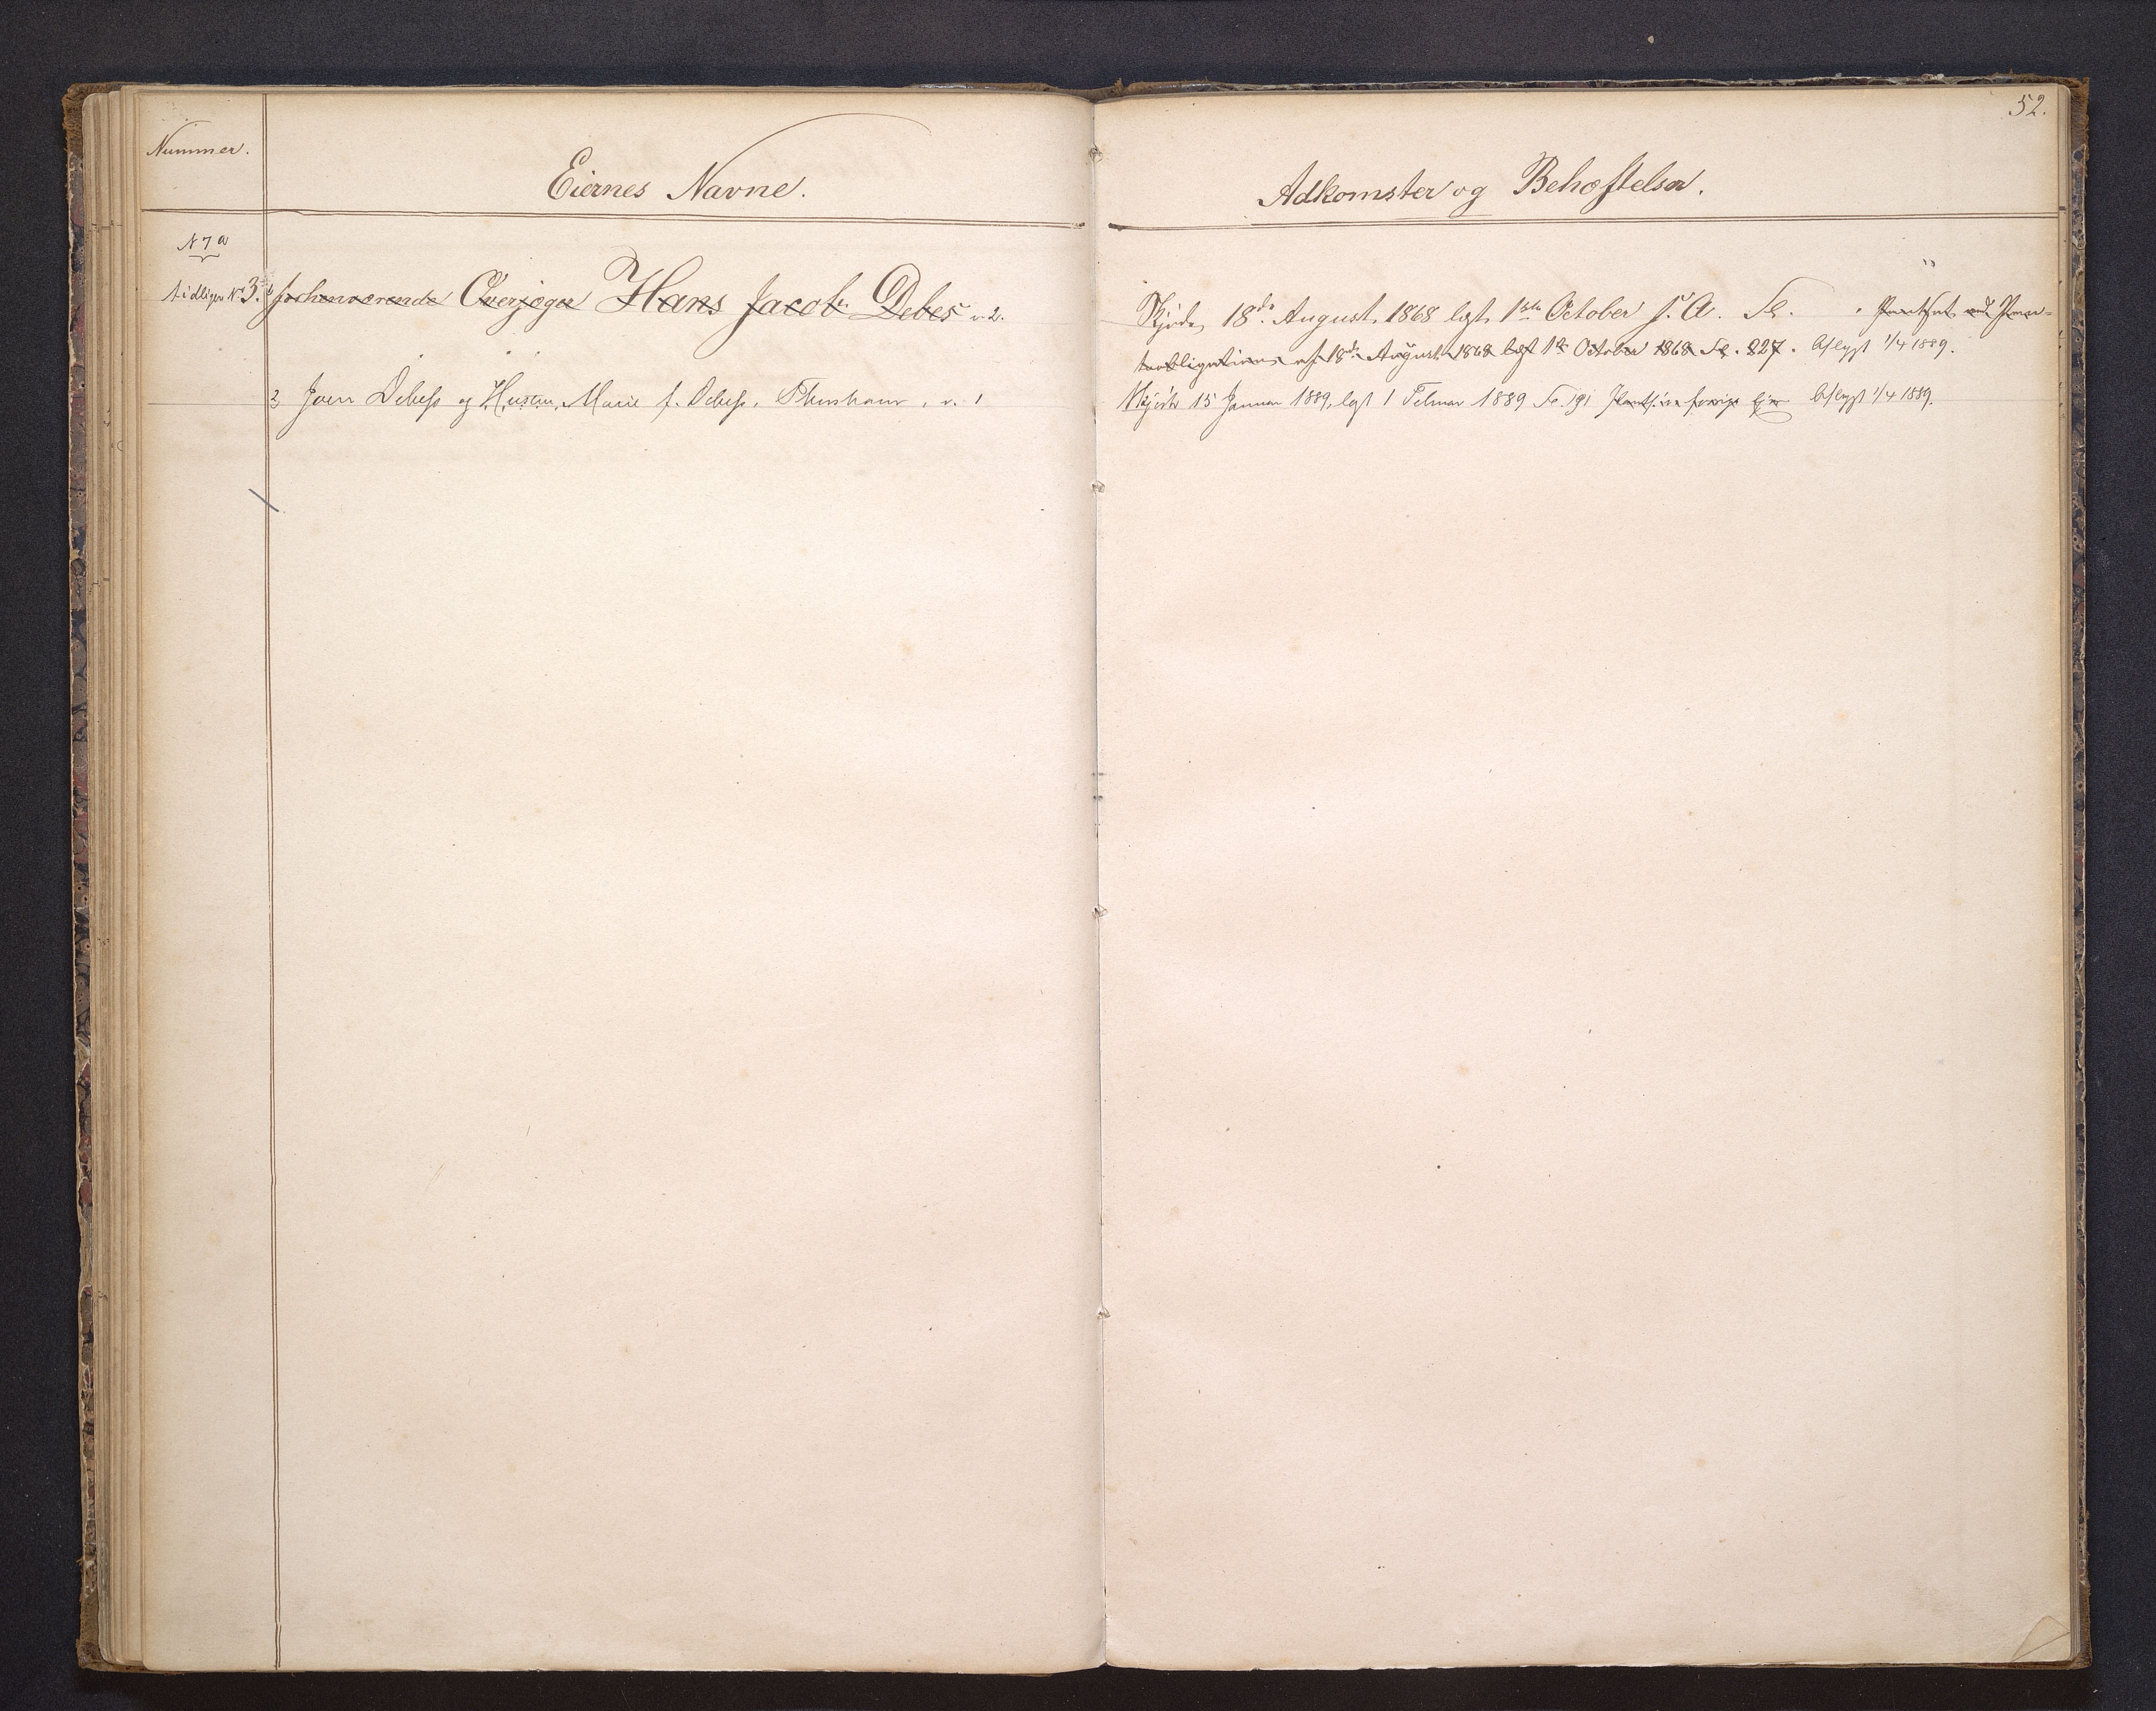 52.
Nummer.
Eiernes Navne.
Adkomster og Behæftelser.
N 7 a
tidligere No 3.
forhenværende Overjæger Hans Jacob Debes v. 2.
Skjøde 18de August 1868 læst 1ste October s. A. Fol. Pantsat ved Pan-
teobligation af 18de August 1868 læst 1ste October 1868 Fol. 227. Aflyst 1/4 1889.
2, Joen Debess og Hustru Marie f. Debess, Thorshavn, v. 1
Skjøde 15 Januar 1889, læst 1 Februar 1889 Fo. 191 forrige Ejer Aflyst 1/4 1889.